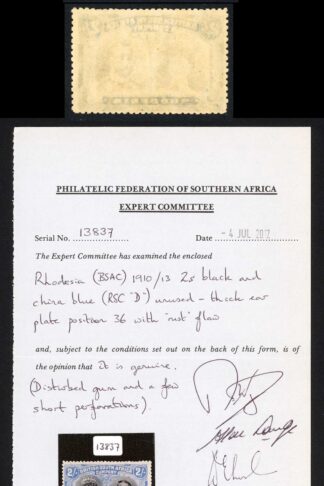 PHILATELIC FEDERATION OF SOUTHERN AFRICA
EXPERT COMMITTEE
Serial No. 13837 Date -4 JUL 2012
The Expert Committee has examined the enclosed
Rhodesia (BSAC) 1910/13 2s black and
china blue (RSC "D") unused - thick ear
plate position 36 with "nut" flaw
and, subject to the conditions set out on the back of this form, is of
the opinion that it is genuine.
(Disturbed gum and a few
short perforations).
13837
2/- BRITISH SOUTH AFRICA 2/-
COMPANY